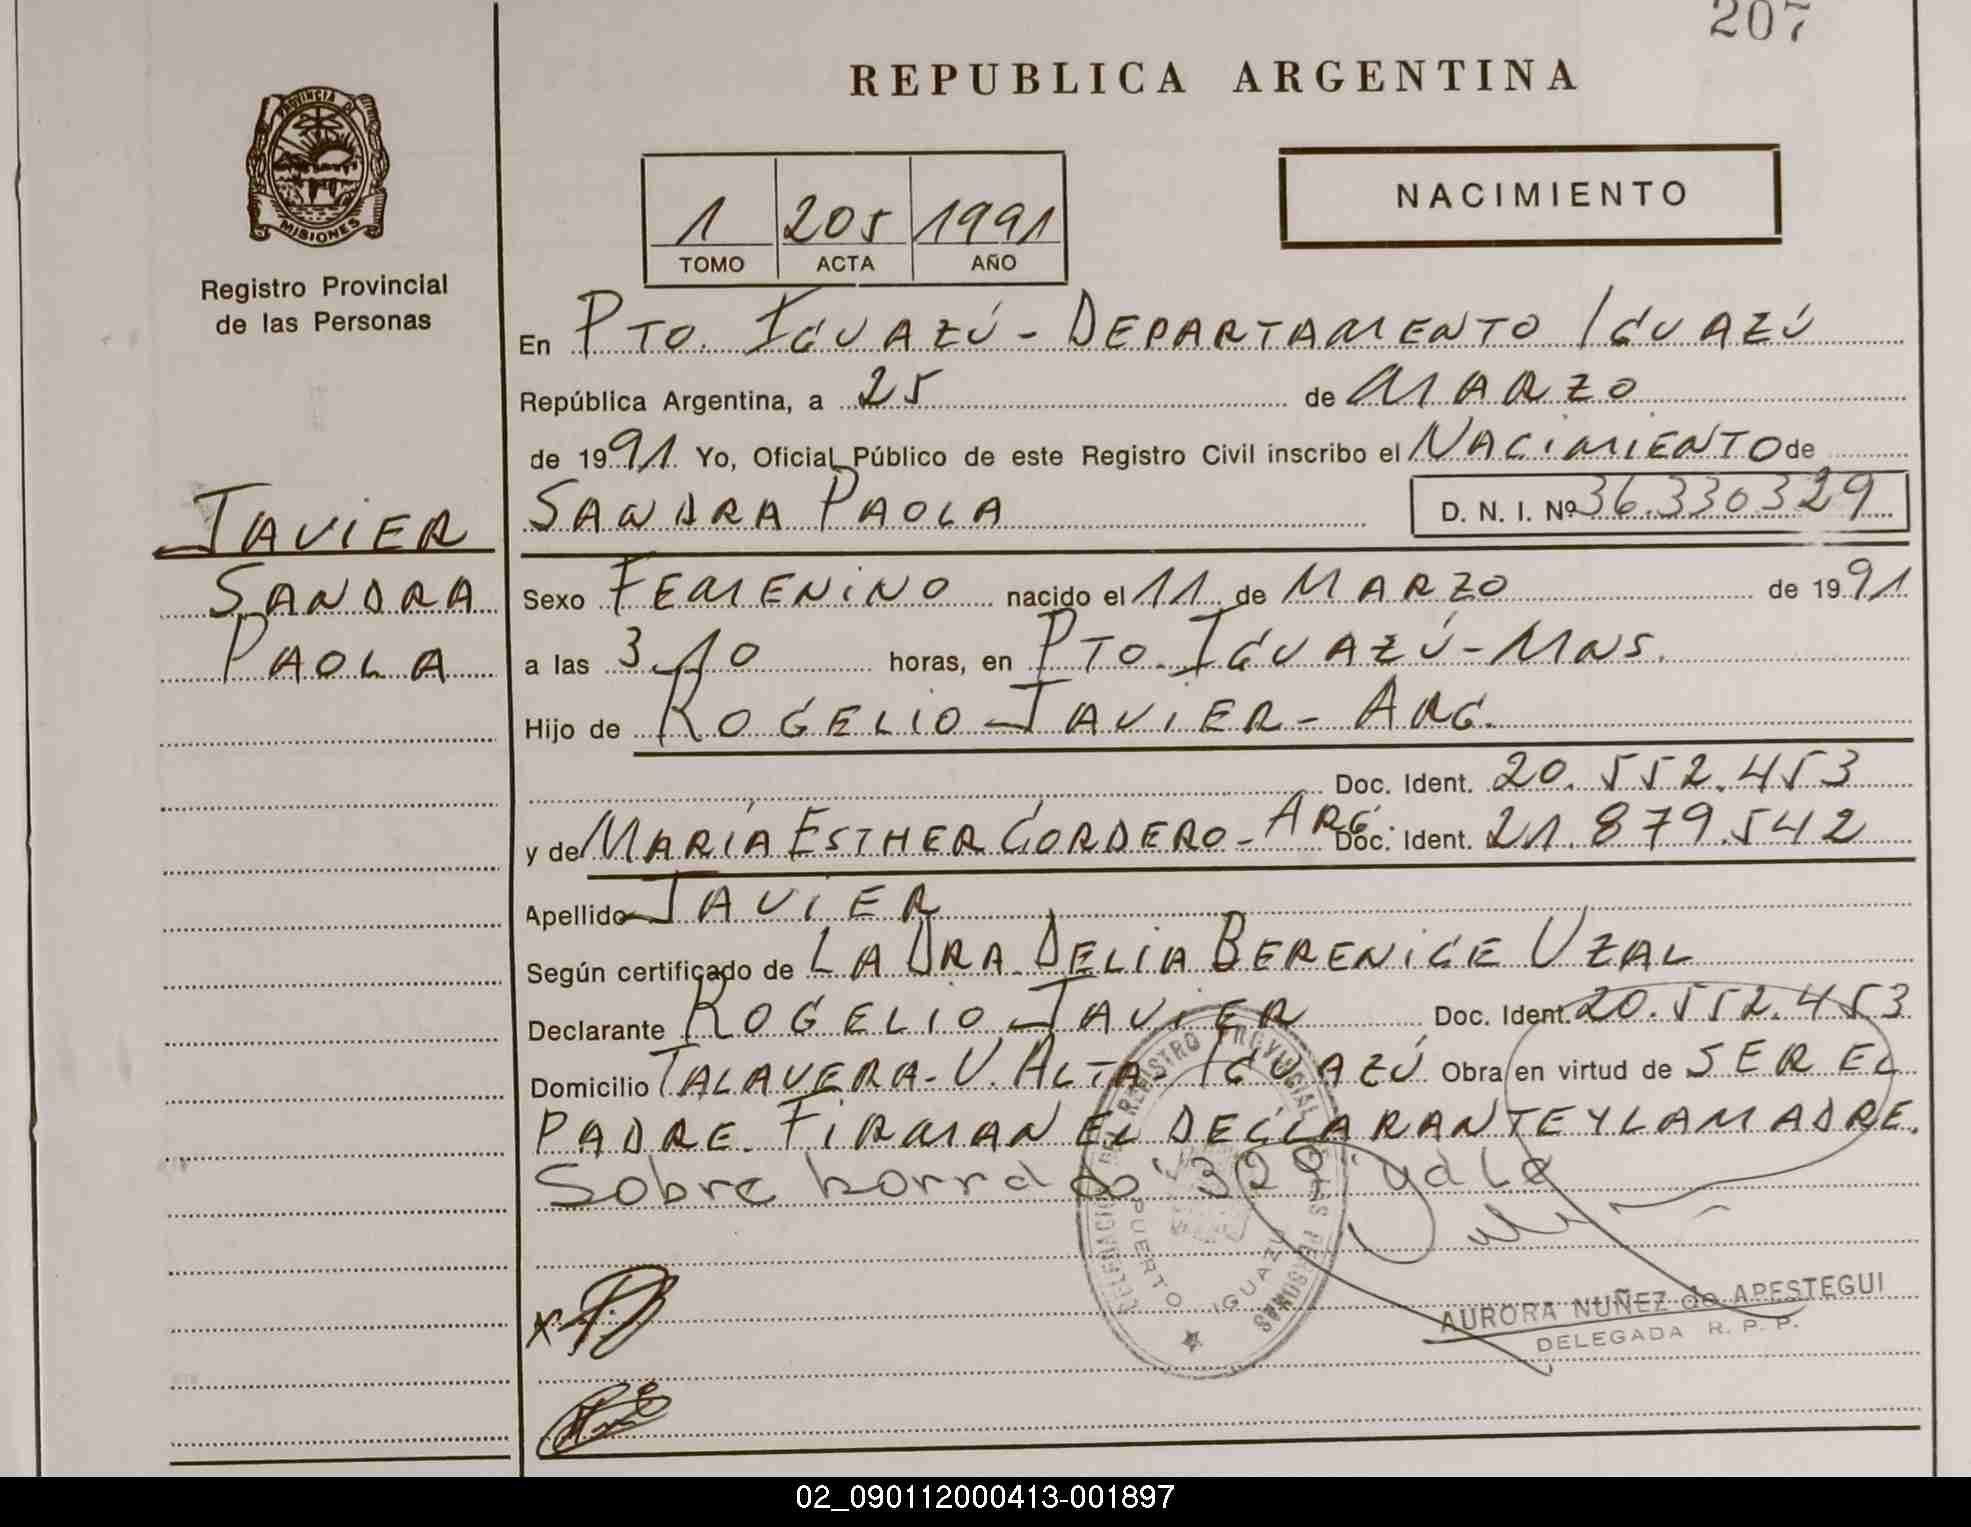 207
REPUBLICA ARGENTINA
PROVINCIA DE
MISIONES
Registro Provincial
de las Personas
1 205 1991
TOMO ACTA AÑO
NACIMIENTO
En PTO. IGUAZÚ - DEPARTAMENTO IGUAZÚ
República Argentina, a 25 de MARZO
de 1991 Yo, Oficial Público de este Registro Civil inscribo el NACIMIENTO de
SANDRA PAOLA D. N. I. Nº 36.330329
JAVIER
SANDRA
PAOLA
Sexo FEMENINO nacido el 11 de MARZO de 1991
a las 3,10 horas, en PTO. IGUAZÚ - MNS.
Hijo de ROGELIO JAVIER - ARG.
Doc. Ident. 20.552.453
y de MARÍA ESTHER CORDERO - ARG. Doc. Ident. 21.879.542
Apellido JAVIER
Según certificado de LA DRA. DELIA BERENICE UZAL
Declarante ROGELIO JAVIER Doc. Ident. 20.552.453
Domicilio TALAVERA - V. ALTA - IGUAZÚ Obra en virtud de SER EL
PADRE. FIRMAN EL DECLARANTE Y LA MADRE.
Sobre borrado "329" vale
DELEGACION DEL REGISTRO PROVINCIAL DE LAS PERSONAS
PUERTO IGUAZU
X
AURORA NUÑEZ de APESTEGUI
DELEGADA R. P. P.
02_090112000413-001897